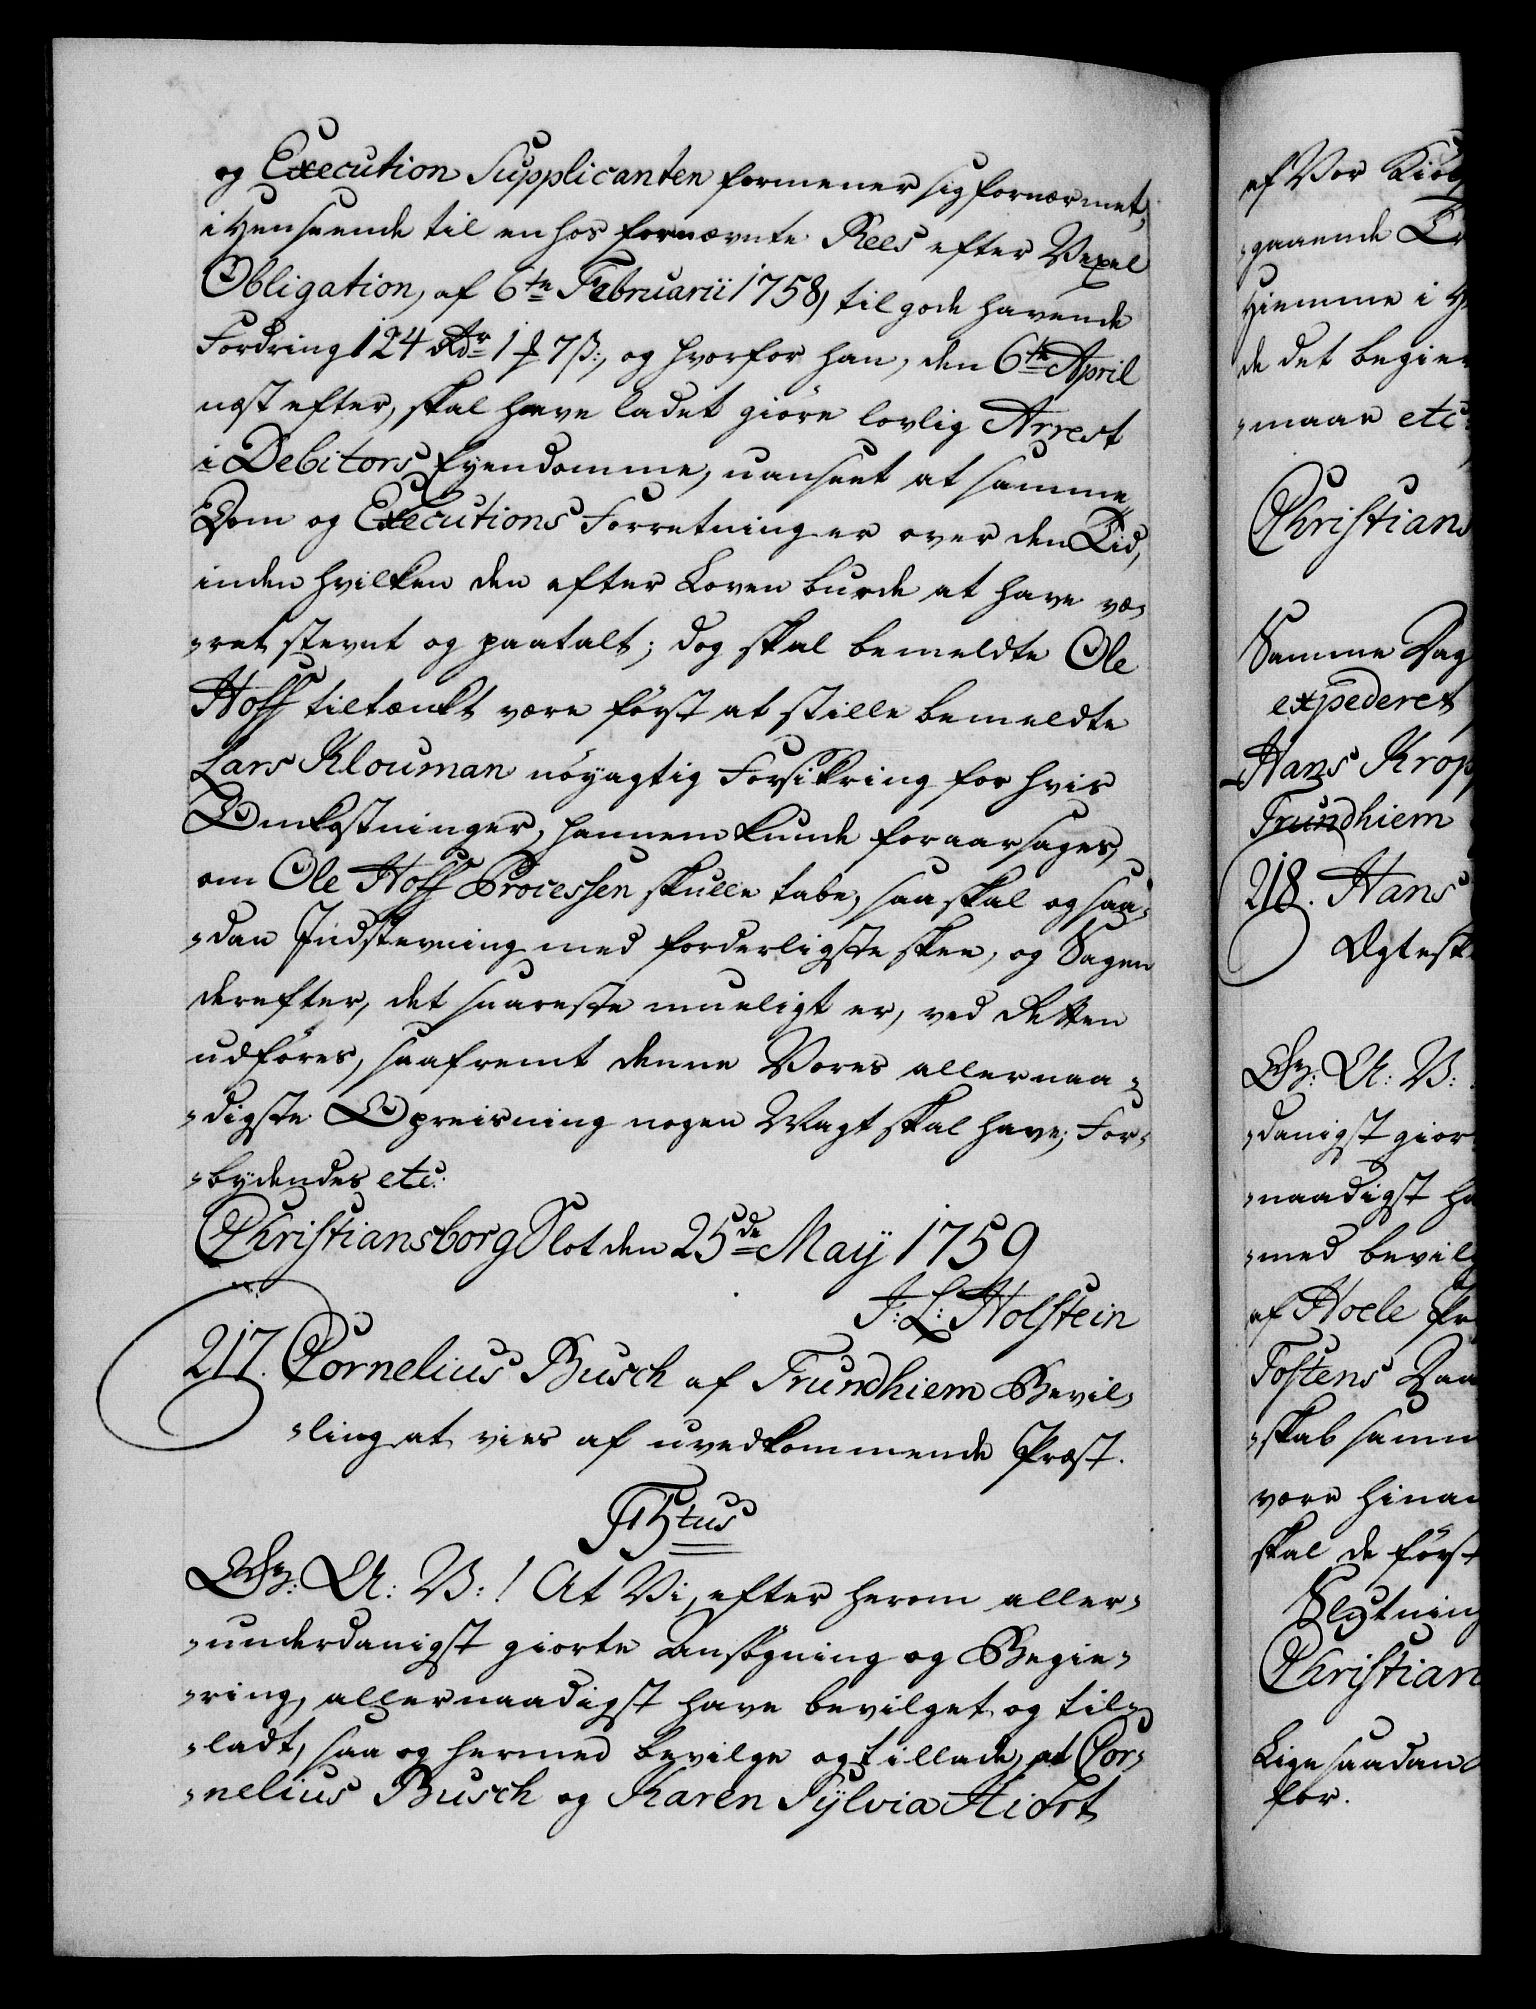 og Execution Supplicanten formener sig fornærmet,
i Henseende til en hos fornævnte Rees efter Vexel
Obligation, af 6te Februarii 1758, til gode havende
Fordring 124 Rdr 1 ℔ 7 ß:, og hvorfor han, den 6te April
næst efter, skal have ladet giöre lovlig Arrest
i Debitors Eyendomme, uanseet at samme
Dom og Executions Forretning er over den Tid,
inden hvilken den efter Loven burde at have væ-
-ret stevnt og paatalt; dog skal bemeldte Ole
Hoff tiltænkt være först at stille bemeldte
Lars Klouman nöyagtig Forsikring for hvis
Omkostninger, hannem kunde foraarsages,
om Ole Hoff Processen skulle tabe, saa skal og saa-
-dan Indstevning med forderligste skee, og Sagen
derefter, det snareste mueligt er, ved Retten
udföres, saafremt denne Vores allernaa-
-digste Opreisning nogen Magt skal have; For-
-bydendes etc:
Christiansborg Slot den 25de Maij 1759
J: L: Holstein
217. Cornelius Busch af Trundhiem Bevil-
-ling at vies af uvedkommende Præst.
F 5tus
Gr: A: V: ! At Vi, efter herom aller-
-underdanigst giorte Ansögning og Begie-
-ring, allernaadigst have bevilget og til-
-ladt, saa og hermed bevilge og tillade, at Cor-
-nelius Busch og Karen Sylvia Hiort
af Vor Kiöb
-gaaende
Hiemme i
de det begier
-maae etc:
Christians
Samme Dag
expederet
Hans Krop
Trundhiem
218. Hans
Ægtesk
Gr: A: V:
-danigst gior
-naadigst ha
-med bevilg
af Hoele Pr
Tostens Daa
-skab samm
være hinan
skal de först
Slutning
Christian
Lige saadan
for.